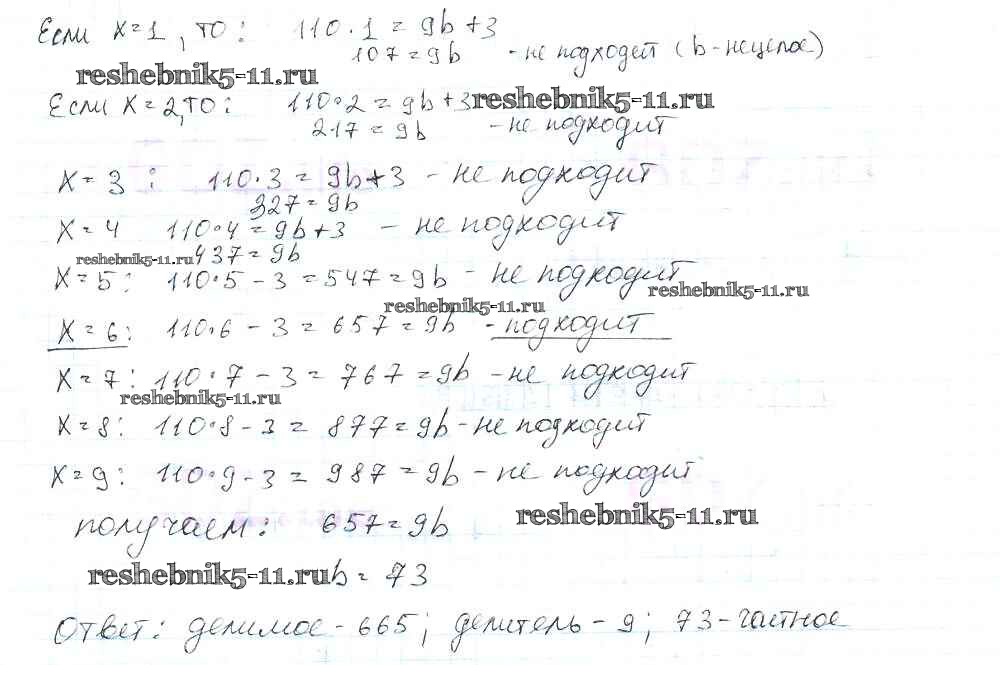 Если x=1, то: 110·1 = 9b+3
107 = 9b - не подходит (b-нецелое)
reshebnik5-11.ru
Если x=2, то: 110·2 = 9b+3 reshebnik5-11.ru
217 = 9b - не подходит
x=3: 110·3 = 9b+3 - не подходит
327 = 9b
x=4 110·4 = 9b+3 - не подходит
reshebnik5-11.ru 437 = 9b
x=5: 110·5 - 3 = 547 = 9b - не подходит
reshebnik5-11.ru reshebnik5-11.ru
x=6: 110·6 - 3 = 657 = 9b - подходит
x=7: 110·7 - 3 = 767 = 9b - не подходит
reshebnik5-11.ru
x=8: 110·8 - 3 = 877 = 9b - не подходит
x=9: 110·9 - 3 = 987 = 9b - не подходит
получаем: 657 = 9b
reshebnik5-11.ru
reshebnik5-11.ru b = 73
Ответ: делимое - 665; делитель - 9; 73 - частное